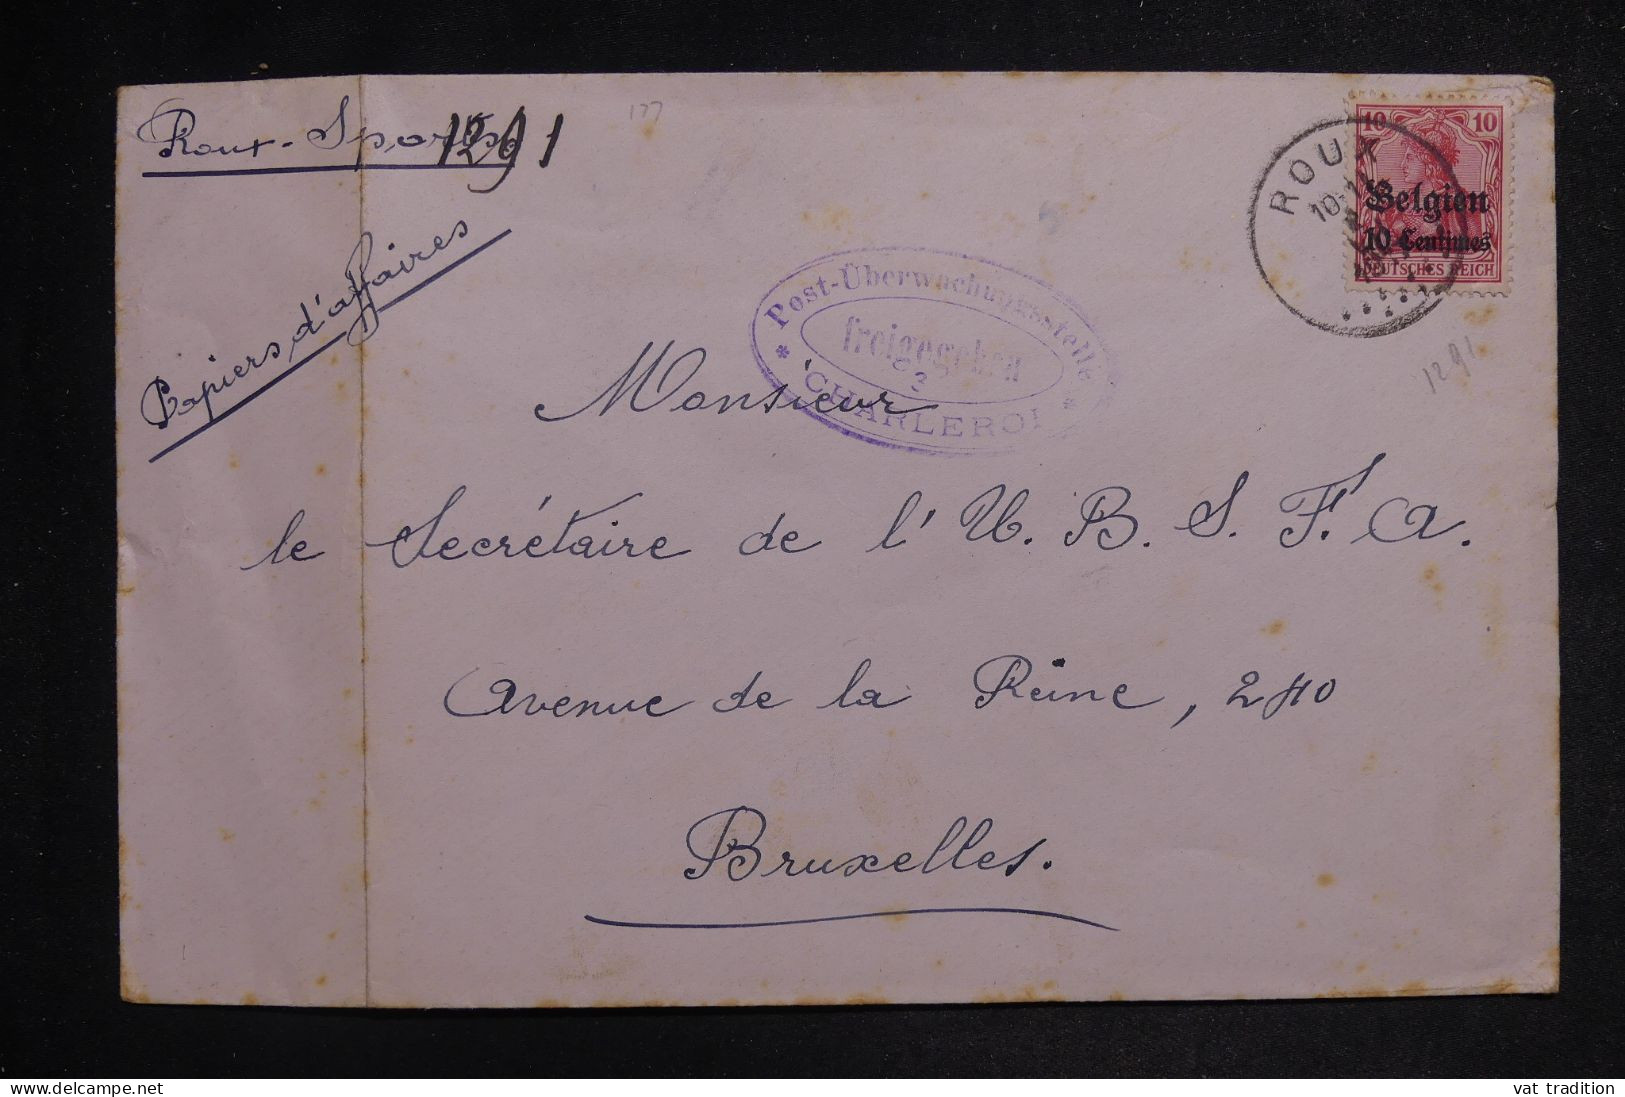 Roux-Sports
1291
177
Papiers d'affaires
10 10
Belgien
10 Centimes
DEUTSCHES REICH
ROUX
Post-Überwachungsstelle
freigegeben
C3
* CHARLEROI *
1291
Monsieur
le Secrétaire de l'U.B.S.F.A.
Avenue de la Reine, 240
Bruxelles.
delcampe.net
vat tradition